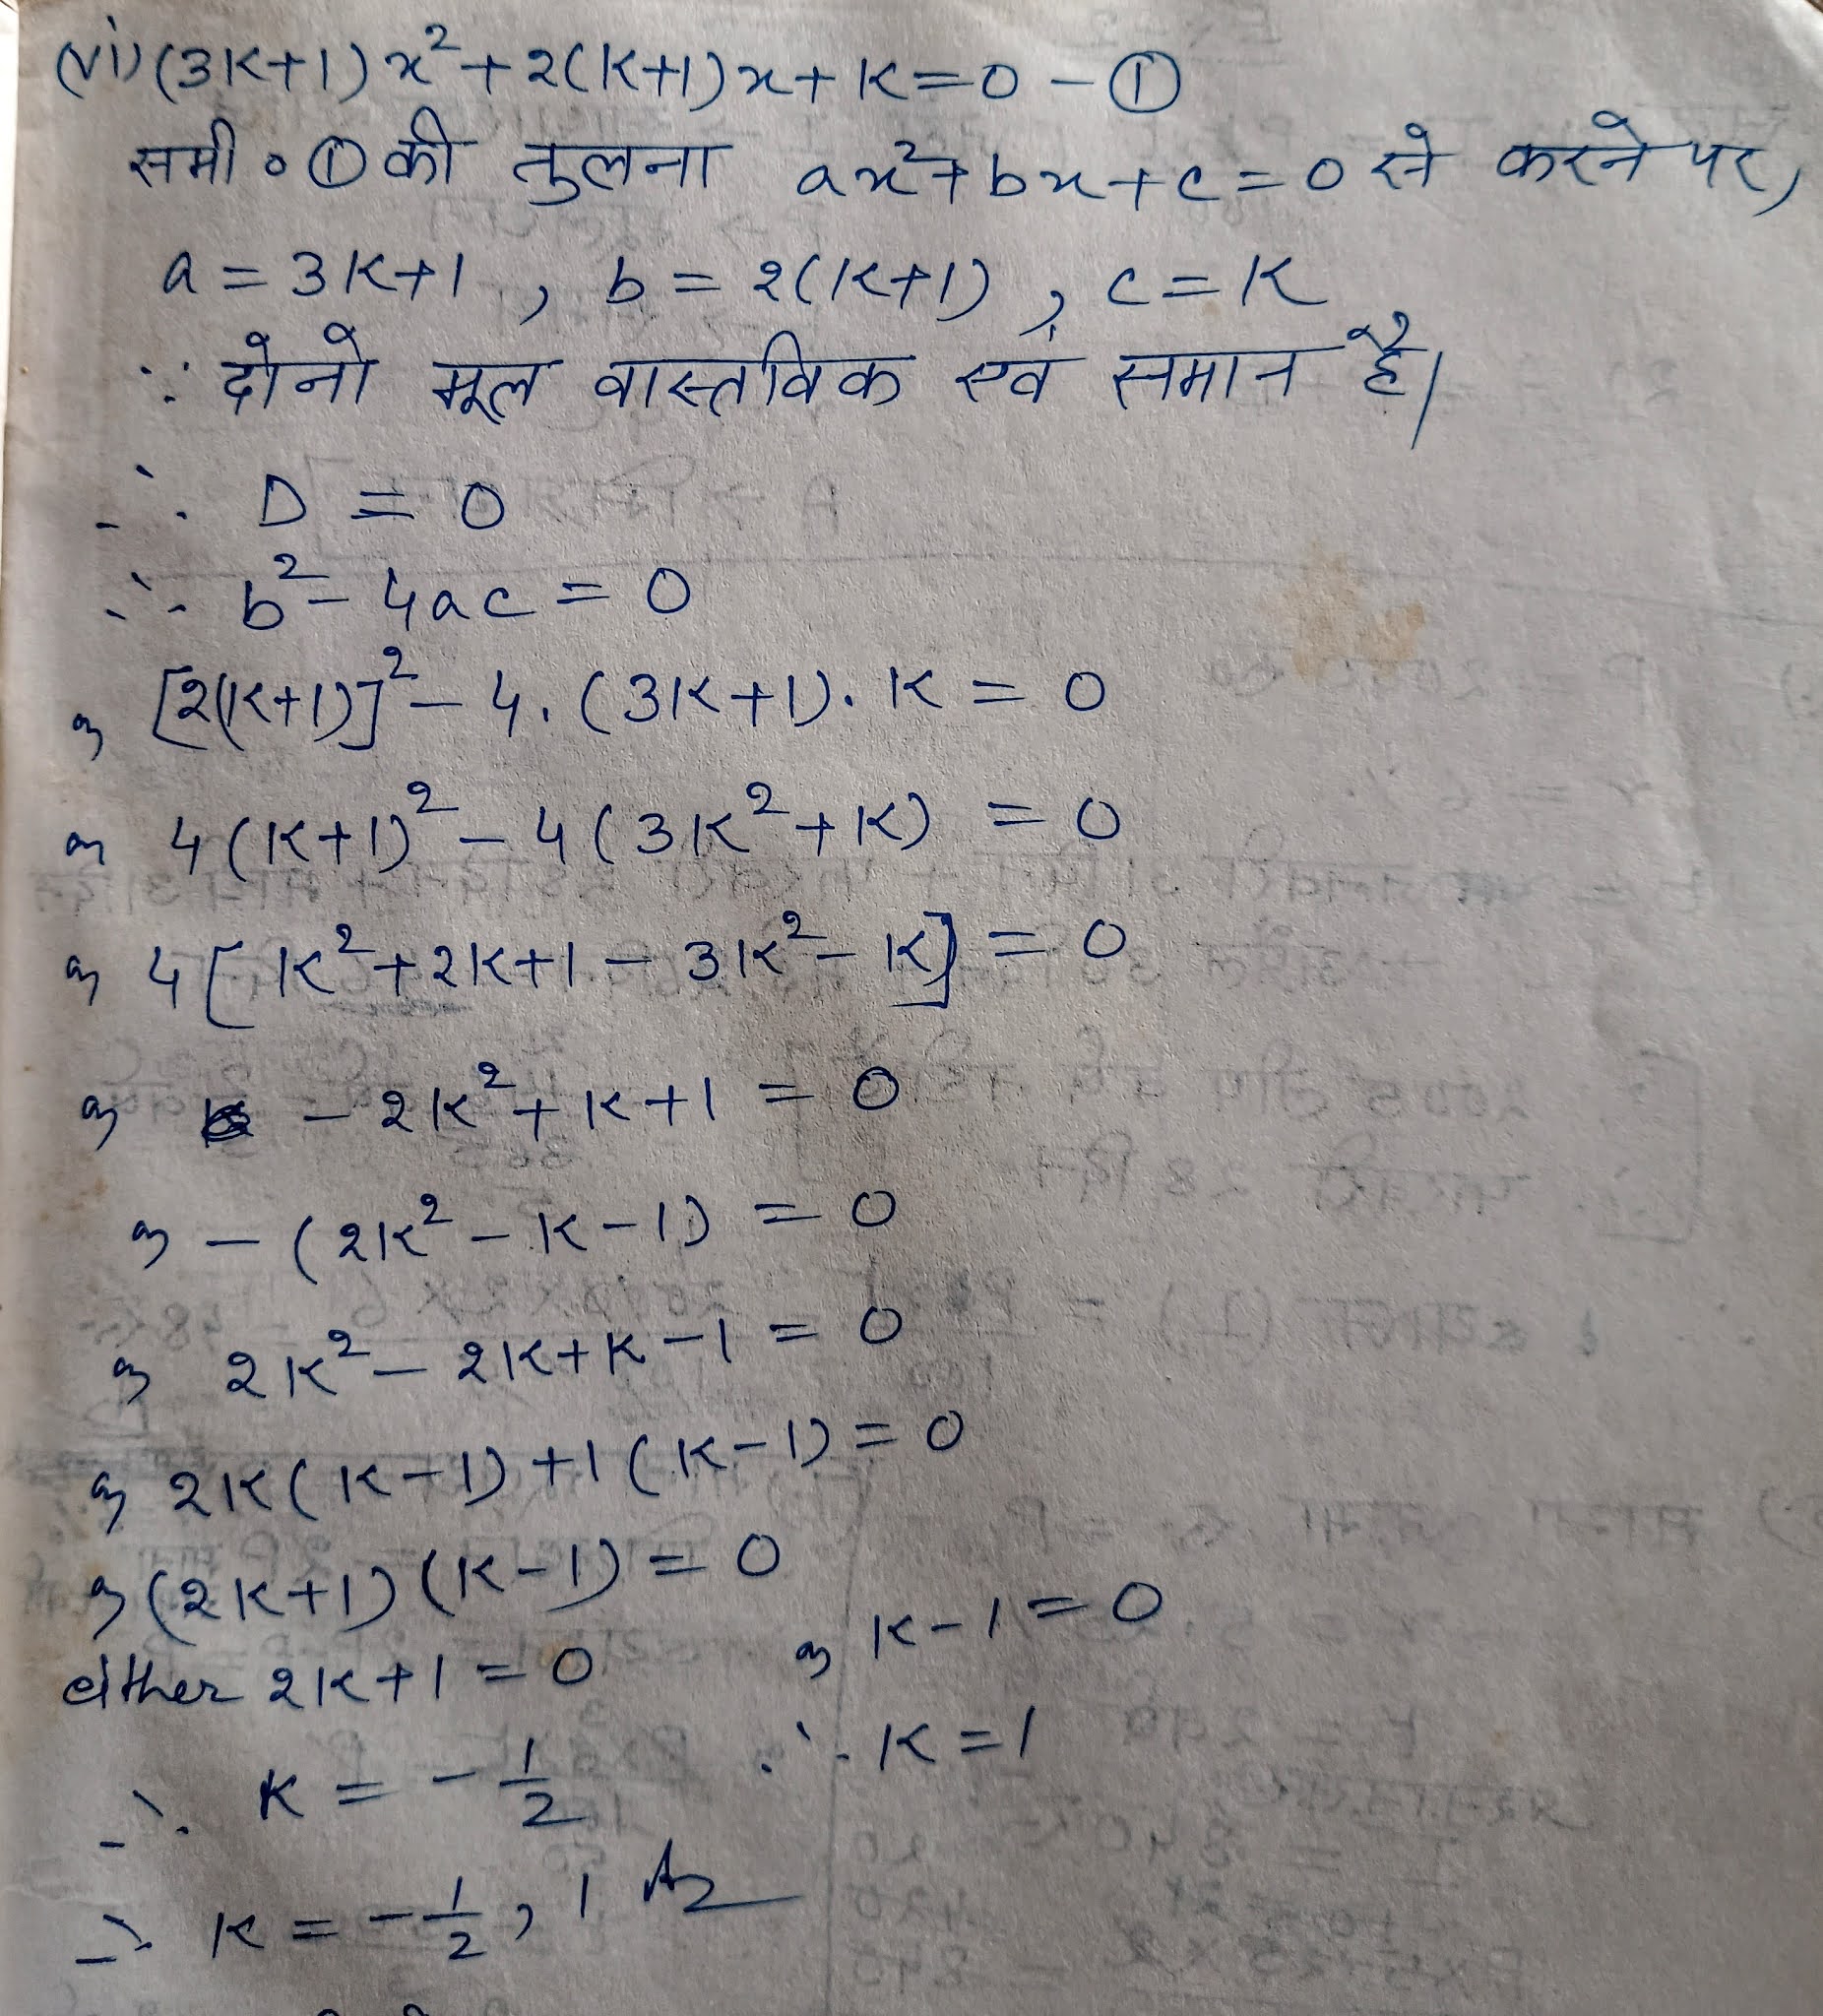 (vi) (3K+1)x²+2(K+1)x+K=0 - ①
समी० ① की तुलना ax²+bx+c=0 से करने पर,
a = 3K+1 , b = 2(K+1) , c = K
∵ दोनो मूल वास्तविक एवं समान है।
∴ D = 0
∴ b² - 4ac = 0
[2(K+1)]² - 4.(3K+1).K = 0
4(K+1)² - 4(3K²+K) = 0
4[K²+2K+1-3K²-K] = 0
-2K²+K+1 = 0
-(2K²-K-1) = 0
2K²-2K+K-1 = 0
2K(K-1)+1(K-1) = 0
(2K+1)(K-1) = 0
either 2K+1 = 0 or K-1 = 0
∴ K = -1/2 ∴ K = 1
∴ K = -1/2, 1 Ans